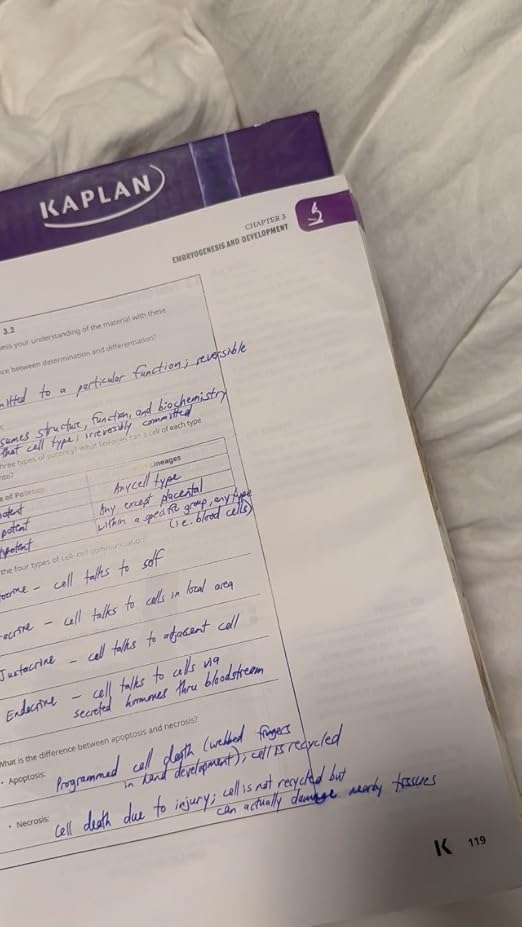 KAPLAN
CHAPTER 3
EMBRYOGENESIS AND DEVELOPMENT
3.2
ess your understanding of the material with these
ce between determination and differentiation?
mitted to a particular function; reversible
sumes structure, function, and biochemistry
that cell type; irreversibly committed
three types of potency? What lineages can a cell of each type
nto?
e of Potency
Lineages
potent
Any cell type
potent
Any except placental
ipotent
within a specific group, any type
(i.e. blood cells)
the four types of cell-cell communication?
ocrine - cell talks to self
acrine - cell talks to cells in local area
Juxtacrine - cell talks to adjascent cell
Endocrine - cell talks to cells via
secreted hormones thru bloodstream
What is the difference between apoptosis and necrosis?
• Apoptosis: Programmed cell death (webbed fingers
in hand development); cell is recycled
• Necrosis: Cell death due to injury; cell is not recycled but
can actually damage nearby tissues
K 119